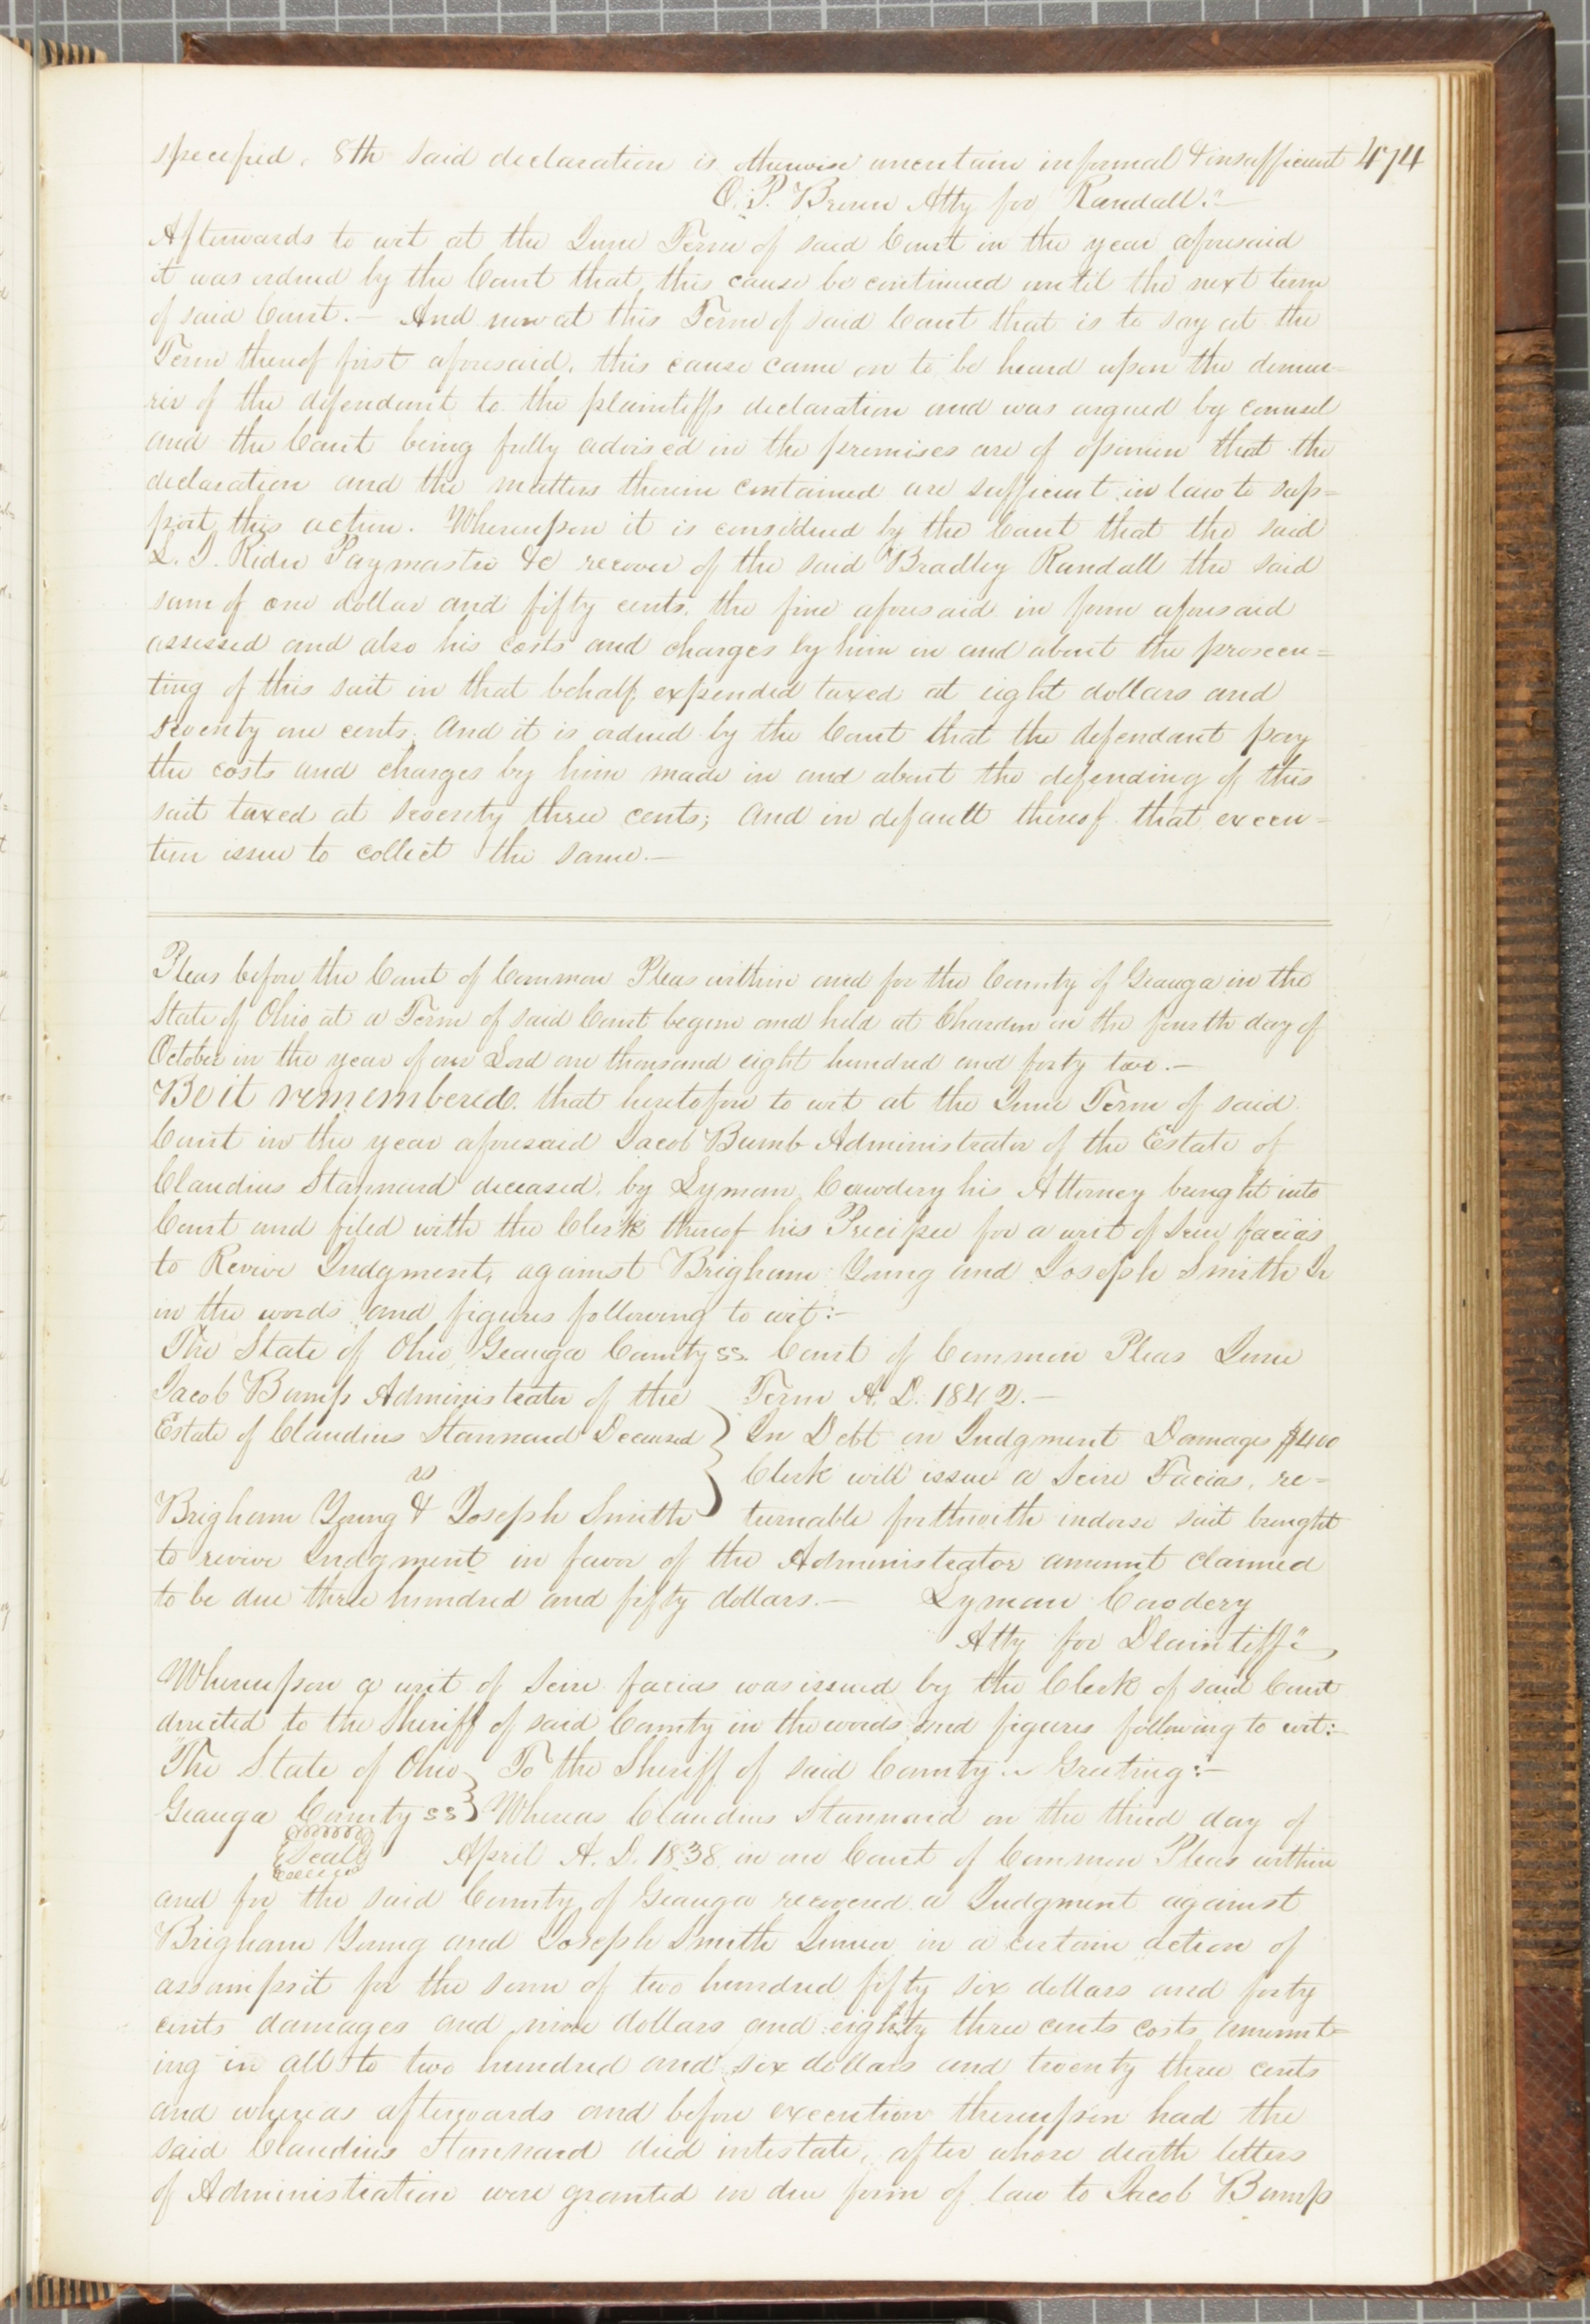 specified. 8th said declaration is otherwise uncertain informal & insufficient 474
O. P. Brown Atty for Randall."
Afterwards to wit at the June Term of said Court in the year aforesaid
it was ordered by the Court that this cause be continued until the next term
of said Court. — And now at this Term of said Court that is to say at the
Term thereof first aforesaid, this cause came on to be heard upon the demur=
rer of the defendant to the plaintiffs declaration and was argued by counsel
and the Court being fully advised in the premises are of opinion that the
declaration and the matters therein contained are sufficient in law to sup=
port this action. Whereupon it is considered by the Court that the said
L. J. Rider Paymaster &c recover of the said Bradley Randall the said
sum of one dollar and fifty cents, the fine aforesaid in form aforesaid
assessed and also his costs and charges by him in and about the prosecu=
ting of this suit in that behalf expended taxed at eight dollars and
seventy one cents. And it is ordered by the Court that the defendant pay
the costs and charges by him made in and about the defending of this
suit taxed at seventy three cents; and in default thereof that execu=
tion issue to collect the same.—
Pleas before the Court of Common Pleas within and for the County of Geauga in the
State of Ohio at a Term of said Court begun and held at Chardon on the fourth day of
October in the year of our Lord one thousand eight hundred and forty two.—
Be it remembered. that heretofore to wit at the June Term of said
Court in the year aforesaid Jacob Bumb Administrator of the Estate of
Claudius Stannard deceased, by Lyman Cowdery his Attorney brought into
Court and filed with the Clerk thereof his Precipee for a writ of Scire facias
to Revive Judgment, against Brigham Young and Joseph Smith Jr
in the words and figures following to wit:—
The State of Ohio Geauga County ss. Court of Common Pleas June
Jacob Bump Administrator of the Term A. D. 1842.—
Estate of Claudius Stannard Deceased } In Debt on Judgment Damages $400
vs Clerk will issue a Scire Facias, re=
Brigham Young & Joseph Smith turnable forthwith indorse suit brought
to revive Judgment in favor of the Administrator amount claimed
to be due three hundred and fifty dollars.— Lyman Cowdery
Atty for Plaintiff"
Whereupon a writ of Scire facias was issued by the Clerk of said Court
directed to the Sheriff of said County in the words and figures following to wit:—
"The State of Ohio } To the Sheriff of said County. Greeting:—
Geauga County ss } Whereas Claudius Stannard on the third day of
Seal April A. D. 1838 in our Court of Common Pleas within
and for the said County of Geauga recovered a Judgment against
Brigham Young and Joseph Smith Junior in a certain action of
assumpsit for the sum of two hundred fifty six dollars and forty
cents damages and nine dollars and eighty three cents costs, amount=
ing in all to two hundred and six dollars and twenty three cents
and whereas afterwards and before execution thereupon had the
said Claudius Stannard died intestate, after whose death letters
of Administration were granted in due form of law to Jacob Bump